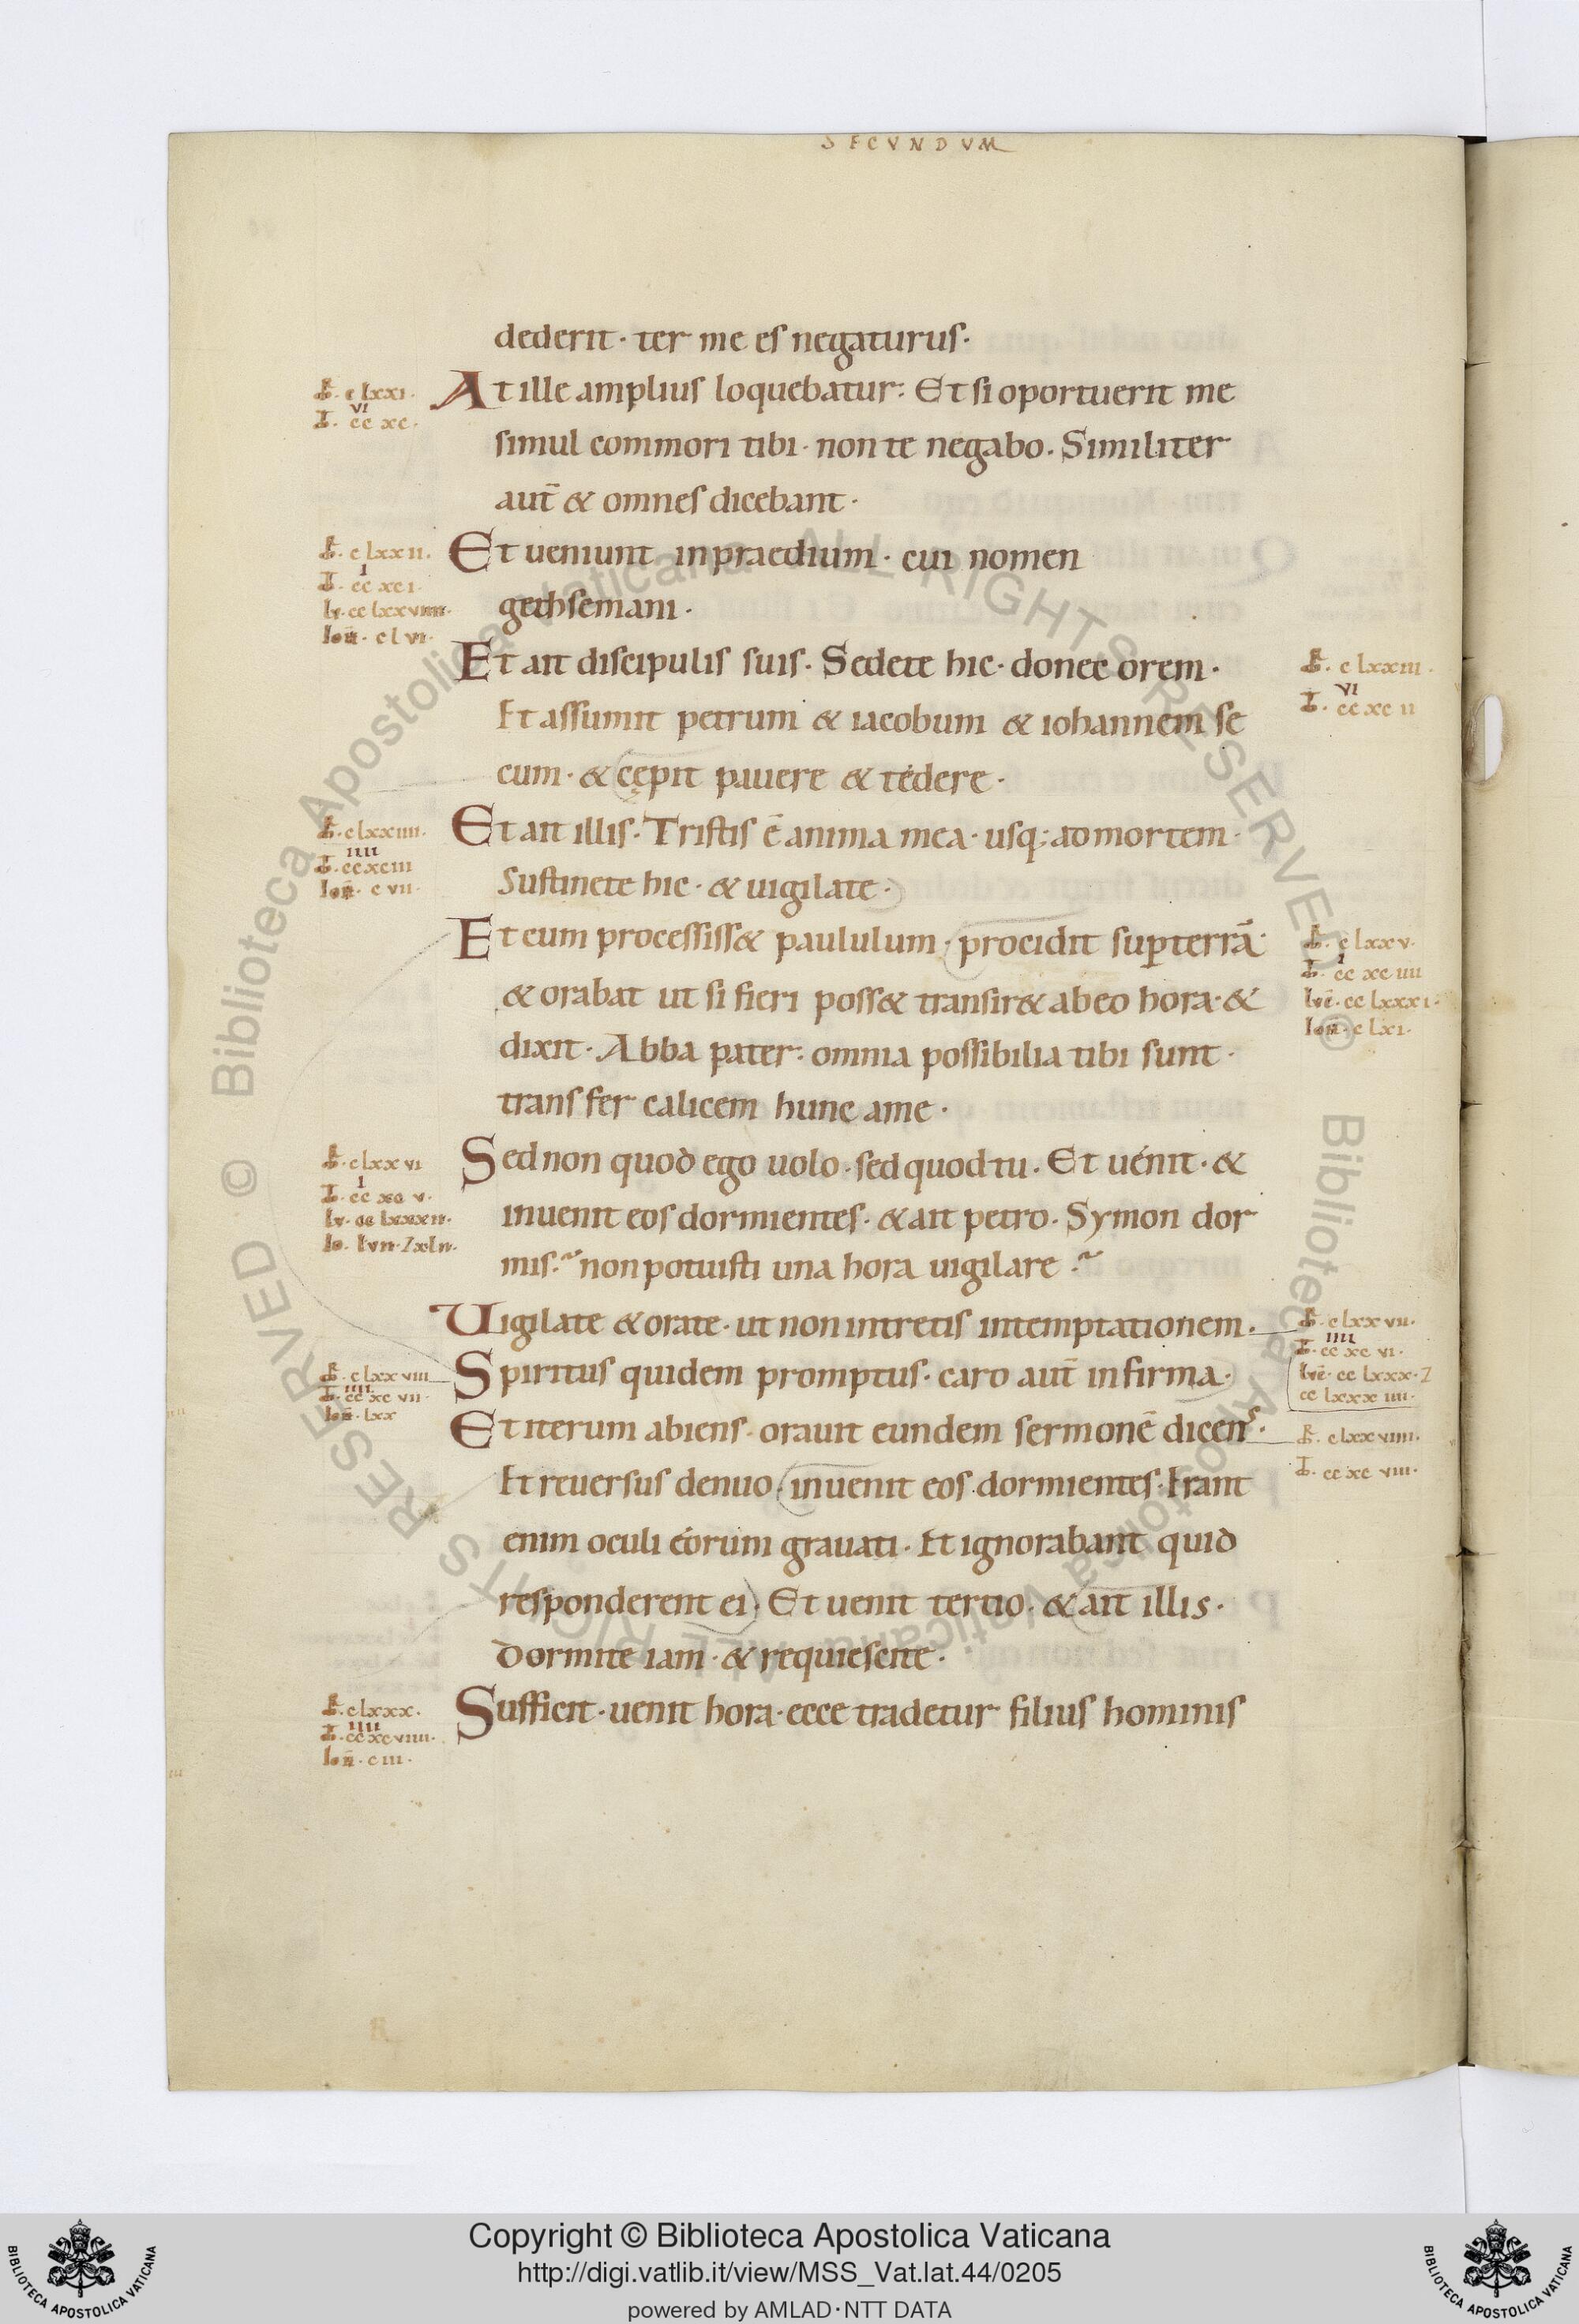 SECVNDVM
dederit· ter me es negaturus·
At ille amplius loquebatur: Et si oportuerit me
simul commori tibi· non te negabo. Similiter
aut̄ & omnes dicebant·
Et ueniunt in praedium· cui nomen
gethsemani·
Et ait discipulis suis. Sedete hic· donec orem·
Et assumit petrum & iacobum & iohannem se
cum· & cępit pauere & tędere·
Et ait illis· Tristis ē anima mea· usq; ad mortem·
Sustinete hic· & uigilate·
Et cum processiss& paululum· procidit sup̄ terrā·
& orabat ut si fieri poss& transir& ab eo hora· &
dixit· Abba pater: omnia possibilia tibi sunt·
transfer calicem hunc a me·
Sed non quod ego uolo· sed quod tu. Et uénit· &
inuenit eos dormientes· & ait petro· Symon dor
mis? non potuisti una hora uigilare?
Uigilate & orate· ut non intretis in temptationem·
Spiritus quidem promptus· caro aut̄ infirma·
Et iterum abiens· orauit eundem sermonē dicens·
Et reuersus denuo· inuenit eos dormientes· Erant
enim oculi eórum grauati· Et ignorabant quid
responderent ei· Et uenit tertio· & ait illis·
Dormite iam· & requiescite·
Sufficit· uenit hora· ecce tradetur filius hominis
c lxxi·
vi
cc xc·
c lxxii·
i
cc xci·
lv· cc lxxviiii·
Ioh̄· c lvi·
c lxxiii·
vi
cc xc ii
c lxxiiii·
iiii
cc xciii
Ioh̄· c vii·
c lxxv·
i
cc xc iiii
lvc̄· cc lxxxi·
Ioh̄· c lxi·
c lxxvi
i
cc xc v·
lv· cc lxxxii·
c lxxvii·
iiii
cc xc vi·
lvc̄· cc lxxx· 7
cc lxxxiiii·
c lxxviii
iiii
cc xc vii·
Ioh̄· lxx
c lxxviiii·
cc xc viii·
c lxxx·
iiii
cc xcviiii·
Ioh̄· c iii·
Copyright © Biblioteca Apostolica Vaticana
http://digi.vatlib.it/view/MSS_Vat.lat.44/0205
powered by AMLAD·NTT DATA
BIBLIOTECA APOSTOLICA VATICANA
BIBLIOTECA APOSTOLICA VATICANA
© Biblioteca Apostolica Vaticana ALL RIGHTS RESERVED © Biblioteca Apostolica Vaticana ALL RIGHTS RESERVED